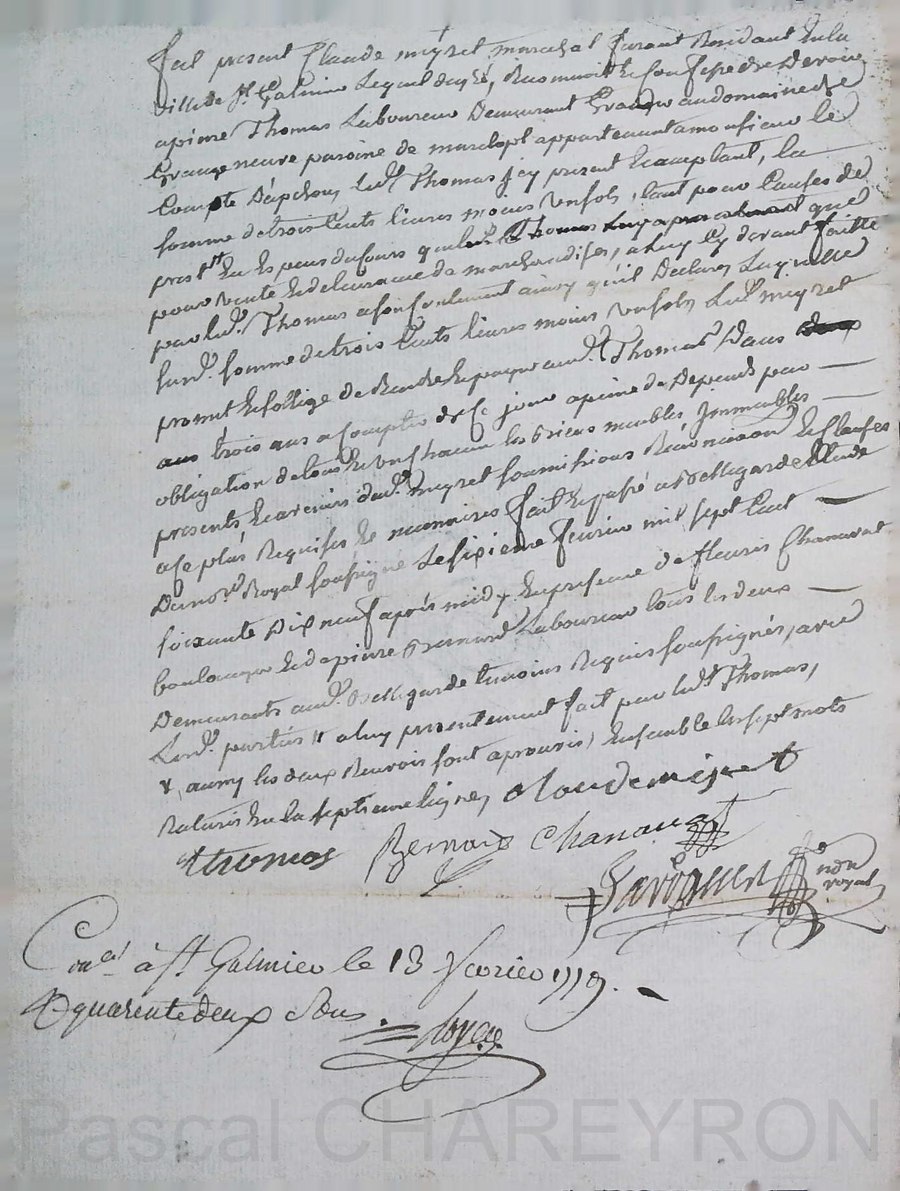 fut present Claude meyret marechal ferant Residant en la
ville de St Galmier Lequel de gré, Reconnoit et Confesse devoir
a pierre Thomas Laboureur Demeurant Granger au domaine de
Grange neuve paroisse de marclopt appartenant a monsieur le
Compte D'apchon, led. Thomas icy present Et acceptant, la
somme de trois Cents livres moins un sol, tant pour Causes de
prest que
pour vente Et delivrance de marchandises, a luy Cy devant faitte
par led. Thomas a son Contentement ainsy qu'il Declare, Laquelle
susd. somme de trois Cents livres moins un sol, Led. meyret
promet Et s'oblige de Rendre Et payer aud. Thomas Dans
trois ans a Compter de Ce jour a peine de Depends par
obligation de tous Et un Chacun ses Biens meubles Immeubles
presents Et avenirs dud. meyret soumissions Renonciation Et Clauses
a Ce plus Requises Et necessaires fait Et passé a Bellegarde Etude
Du no.re Royal soussigné Le sixieme fevrier mil sept Cent
soixante Dix neuf après midy En presence de fleuris Chanavat
boulanger Et de pierre Bernard Laboureur tous les deux
Demeurants aud. Bellegarde temoins Requis soussignés, avec
Lesd. parties, a luy presentement fait par led. Thomas,
aussy les deux Renvois sont aprouvés, Ensemble les sept mots
Raturés En la septieme ligne, Claude meyret
thomas Bernard Chanavat
no.re
royal
Con.lé à St Galmier le 13 fevrier 1779.
quarente deux sous